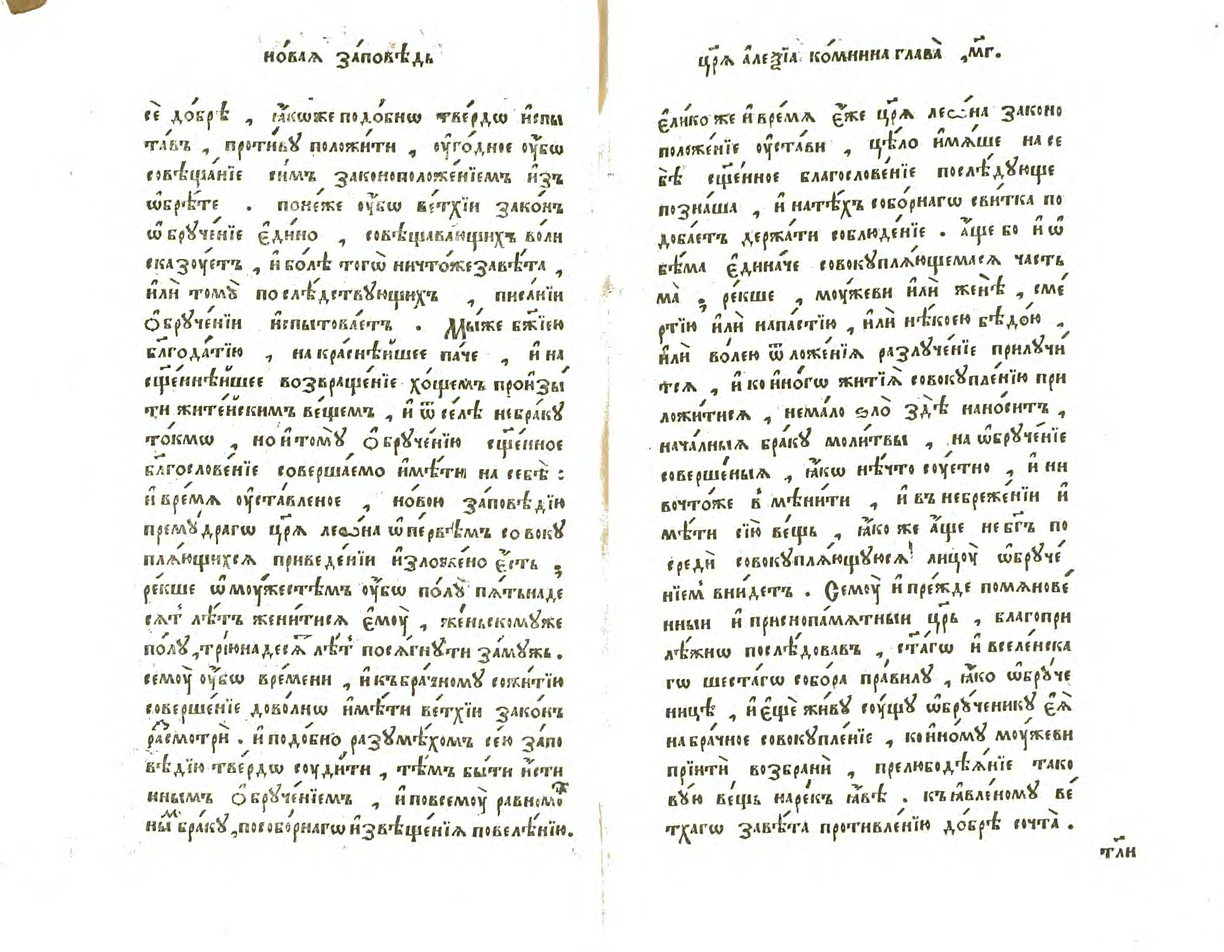 но́вая за́повѣдь
сѐ до́брѣ , ꙗ҆́коже подо́бнѡ тве́рдѡ и҆спы
та́въ , проти́вꙋ положи́ти , ᲂу҆го́дное ᲂу҆́бѡ
совѣща́нїе си́мъ законоположе́нїемъ и҆зъ
ѡ҆брѣ́те . поне́же ᲂу҆́бѡ ве́тхїи зако́нъ
ѡ҆брꙋче́нїе є҆ди́но , совѣщава́ющихъ во́ли
сказꙋ́етъ , и҆ бо́лѣ тогѡ̀ ничто́же завѣ́та ,
и҆лѝ томꙋ̀ послѣ́дствꙋющихъ , писа́нїи
ѻ҆брꙋче́нїи и҆спытова́етъ . Мы́же бж҃їею
благода́тїю , на красне́йшее па́че , и҆ на
сщ҃еннѣ́йшее возвраще́нїе хо́щемъ произы́
ти жите́йскимъ ве́щемъ , и҆ ѿсе́лѣ не бра́кꙋ
то́кмѡ , но и҆ томꙋ̀ ѻ҆брꙋче́нїю сщ҃е́нное
благослове́нїе соверша́емо и҆мѣ́ти на себѣ̀ :
и҆ вре́мя ᲂу҆ста́вленое , но́вою за́повѣдїю
премꙋ́драгѡ цр҃я̀ леѡ́на ѡ҆ пе́рвѣмъ совокꙋ
пля́ющихся приведе́нїи и҆зложе́но є҆́сть ;
ре́кше ѡ҆ мꙋ́жестѣмъ ᲂу҆́бѡ по́лꙋ пятьнаде
ся́т лѣ́тъ жени́тися є҆мꙋ̀ , же́ньскомꙋ же
по́лꙋ , трїюна́десѧ лѣ́т посягнꙋ́ти за́мꙋжь .
семꙋ̀ ᲂу҆́бѡ вре́мени , и҆ къ бра́чномꙋ сожи́тїю
соверше́нїе дово́лнѡ и҆мѣ́ти ве́тхїи зако́нъ
расмотрѝ . и҆ подо́бно разꙋмѣ́хомъ се́ю за́по
вѣдїю тве́рдѡ сꙋди́ти , тѣ́мъ бы́ти и҆́сти
ннымъ ѻ҆брꙋче́нїемъ , и҆ по всемꙋ̀ равномо
ны бра́кꙋ , по собо́рнагѡ и҆звѣще́нїя повелѣ́нїю .
цр҃я̀ а҆леѯі́а комни́на глава̀ ,мг҃.
є҆ли́ко же и҆ вре́мя є҆́же цр҃я̀ леѡ́на законо
положе́нїе ᲂу҆ста́ви , цѣ́ло и҆мя́ше на се
бѣ̀ сщ҃е́нное благослове́нїе послѣ́дꙋюще
позна́ша , и҆ на тѣ́хъ собо́рнагѡ сви́тка по
доба́етъ держа́ти соблюде́нїе . а҆́ще бо и҆ ѡ҆
бѣ́ма є҆дина́че совокꙋпля́ющемася часть
ма̀ ; ре́кше , мꙋ́жеви и҆лѝ женѣ̀ , сме́
ртїю и҆лѝ напа́стїю , и҆лѝ нѣ́коею бѣдо́ю ,
и҆лѝ во́лею ѿложе́нїя разлꙋче́нїе прилꙋчи́
тся , и҆ ко и҆но́гѡ житїя̀ совокꙋпле́нїю при
ложи́тися , нема́ло ѕло̀ здѣ̀ нано́ситъ ,
нача́лныя бра́кꙋ моли́твы , на ѡ҆брꙋче́нїе
соверше́ныя , ꙗ҆́кѡ нѣ́что сꙋ́етно , и҆ ни
вочто́же вмѣни́ти , и҆ въ небреже́нїи и҆
мѣ́ти сїю̀ ве́щь , ꙗ҆́ко же а҆́ще не бг҃ъ по
средѝ совокꙋпля́ющꙋюся лицꙋ̀ ѡ҆брꙋче́
нїем вни́детъ . Семꙋ̀ и҆ пре́жде помянове́
нныи и҆ приснопа́мятныи цр҃ь , благопри
лѣ́жнѡ послѣ́довавъ , ст҃а́гѡ и҆ вселе́нска
гѡ шеста́гѡ собо́ра пра́вилꙋ , ꙗ҆́ко ѡ҆брꙋче
ницѣ̀ , и҆ є҆щѐ жи́вꙋ сꙋ́щꙋ ѡ҆брꙋ́ченикꙋ є҆я̀
на бра́чное совокꙋпле́нїе , ко и҆но́мꙋ мꙋ́жеви
прїитѝ возбранѝ , прелюбодѣя́нїе тако
вꙋ́ю ве́щь наре́къ ꙗ҆́вѣ . къ ꙗ҆вле́номꙋ ве́
тхагѡ завѣ́та противле́нїю до́брѣ сочта̀ .
тли